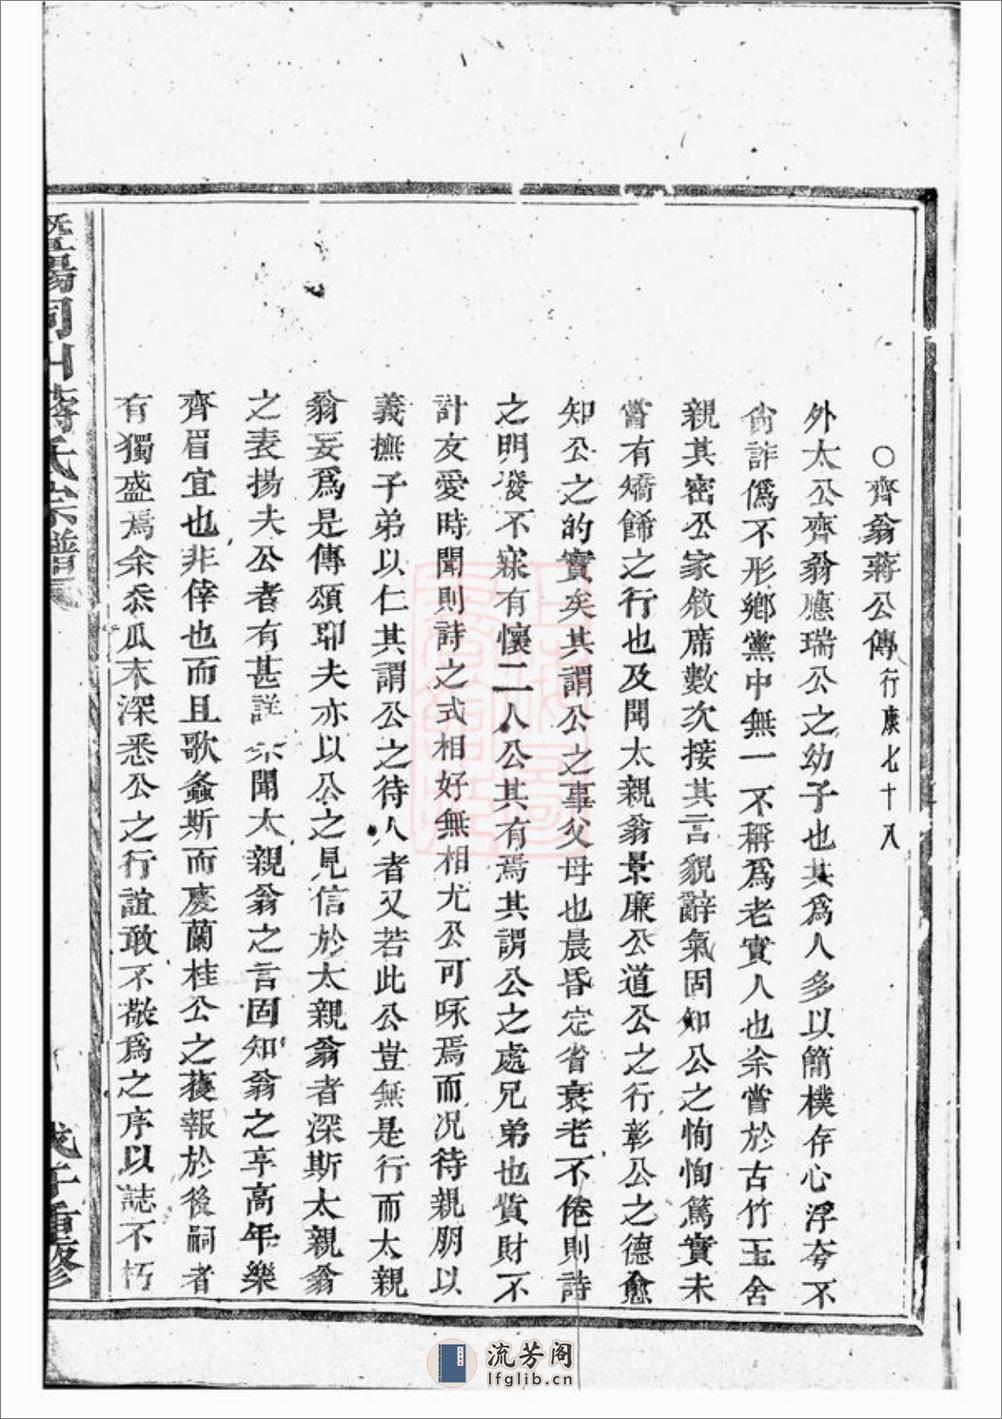 ○齊翁蔣公傳行庚七十八
外太公齊翁應瑞公之幼子也其爲人多以簡樸存心浮夸不
尙詐僞不形鄉黨中無一不稱爲老實人也余嘗於古竹玉舍
親其密公家敘席數次接其言貌辭氣固知公之恂恂篤實未
嘗有矯餙之行也及聞太親翁景廉公道公之行彰公之德愈
知公之的實矣其謂公之事父母也晨昏定省衰老不倦則詩
之明發不寐有懷二人公其有焉其謂公之處兄弟也貲財不
計友愛時聞則詩之式相好無相尤公可咏焉而况待親朋以
義撫子弟以仁其謂公之待人者又若此公豈無是行而太親
翁妄爲是傳頌耶夫亦以公之見信於太親翁者深斯太親翁
之表揚夫公者有甚詳余聞太親翁之言固知翁之享高年樂
齊眉宜也非倖也而且歌螽斯而慶蘭桂公之獲報於後嗣者
有獨盛焉余忝瓜末深悉公之行誼敢不敬爲之序以誌不朽
暨陽同山蔣氏宗譜
戊子重修
流芳阁
lfglib.cn